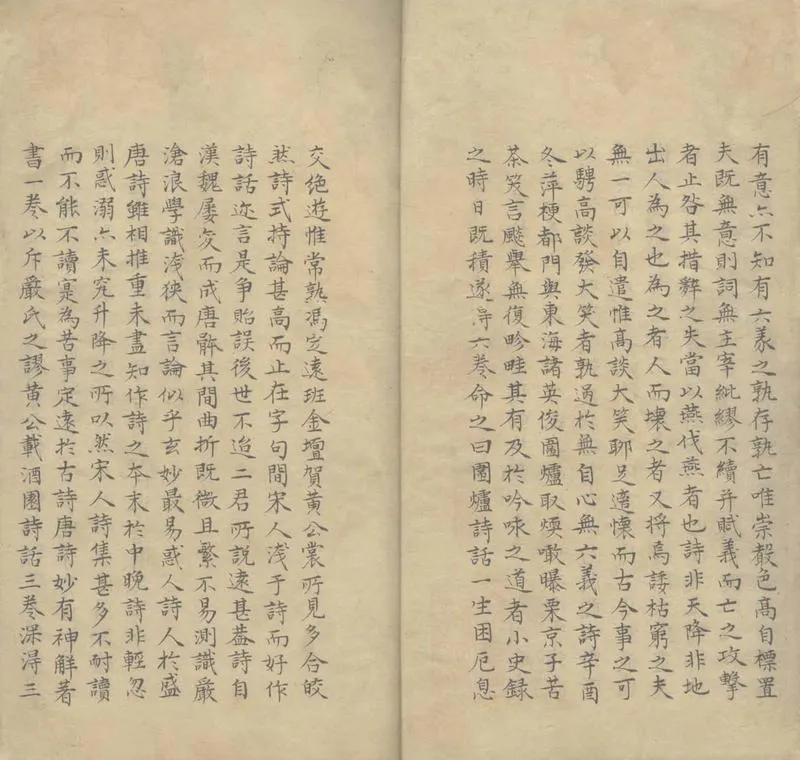 有意亦不知有六義之孰存孰亡唯崇聲色高自標置
夫既無意則詞無主宰紕繆不續并賦義而亡之攻擊
者止咎其措辭之失當以燕伐燕者也詩非天降非地
出人為之也為之者人而壞之者又將焉諉枯窮之夫
無一可以自遣惟高談大笑聊足遣懷而古今事之可
以騁高談發大笑者孰過於無自心無六義之詩辛酉
冬萍梗都門與東海諸英俊圍爐取煗噉曝栗京子苦
茶笑言飈舉無復畛畦其有及於吟咏之道者小史錄
之時日既積遂得六卷命之曰圍爐詩話一生困厄息
交絕遊惟常熟馮定遠班金壇賀黃公裳所見多合皎
然詩式持論甚高而止在字句間宋人淺于詩而好作
詩話邇言是爭貽誤後世不逮二君所說遠甚葢詩自
漢魏屢變而成唐體其間曲折既微且繁不易測識嚴
滄浪學識淺狹而言論似乎玄妙最易惑人詩人於盛
唐詩雖相推重未盡知作詩之本末於中晚詩非輕忽
則惑溺亦未究升降之所以然宋人詩集甚多不耐讀
而不能不讀寔為苦事定遠於古詩唐詩妙有神解著
書一卷以斥嚴氏之謬黃公載酒園詩話三卷深得三